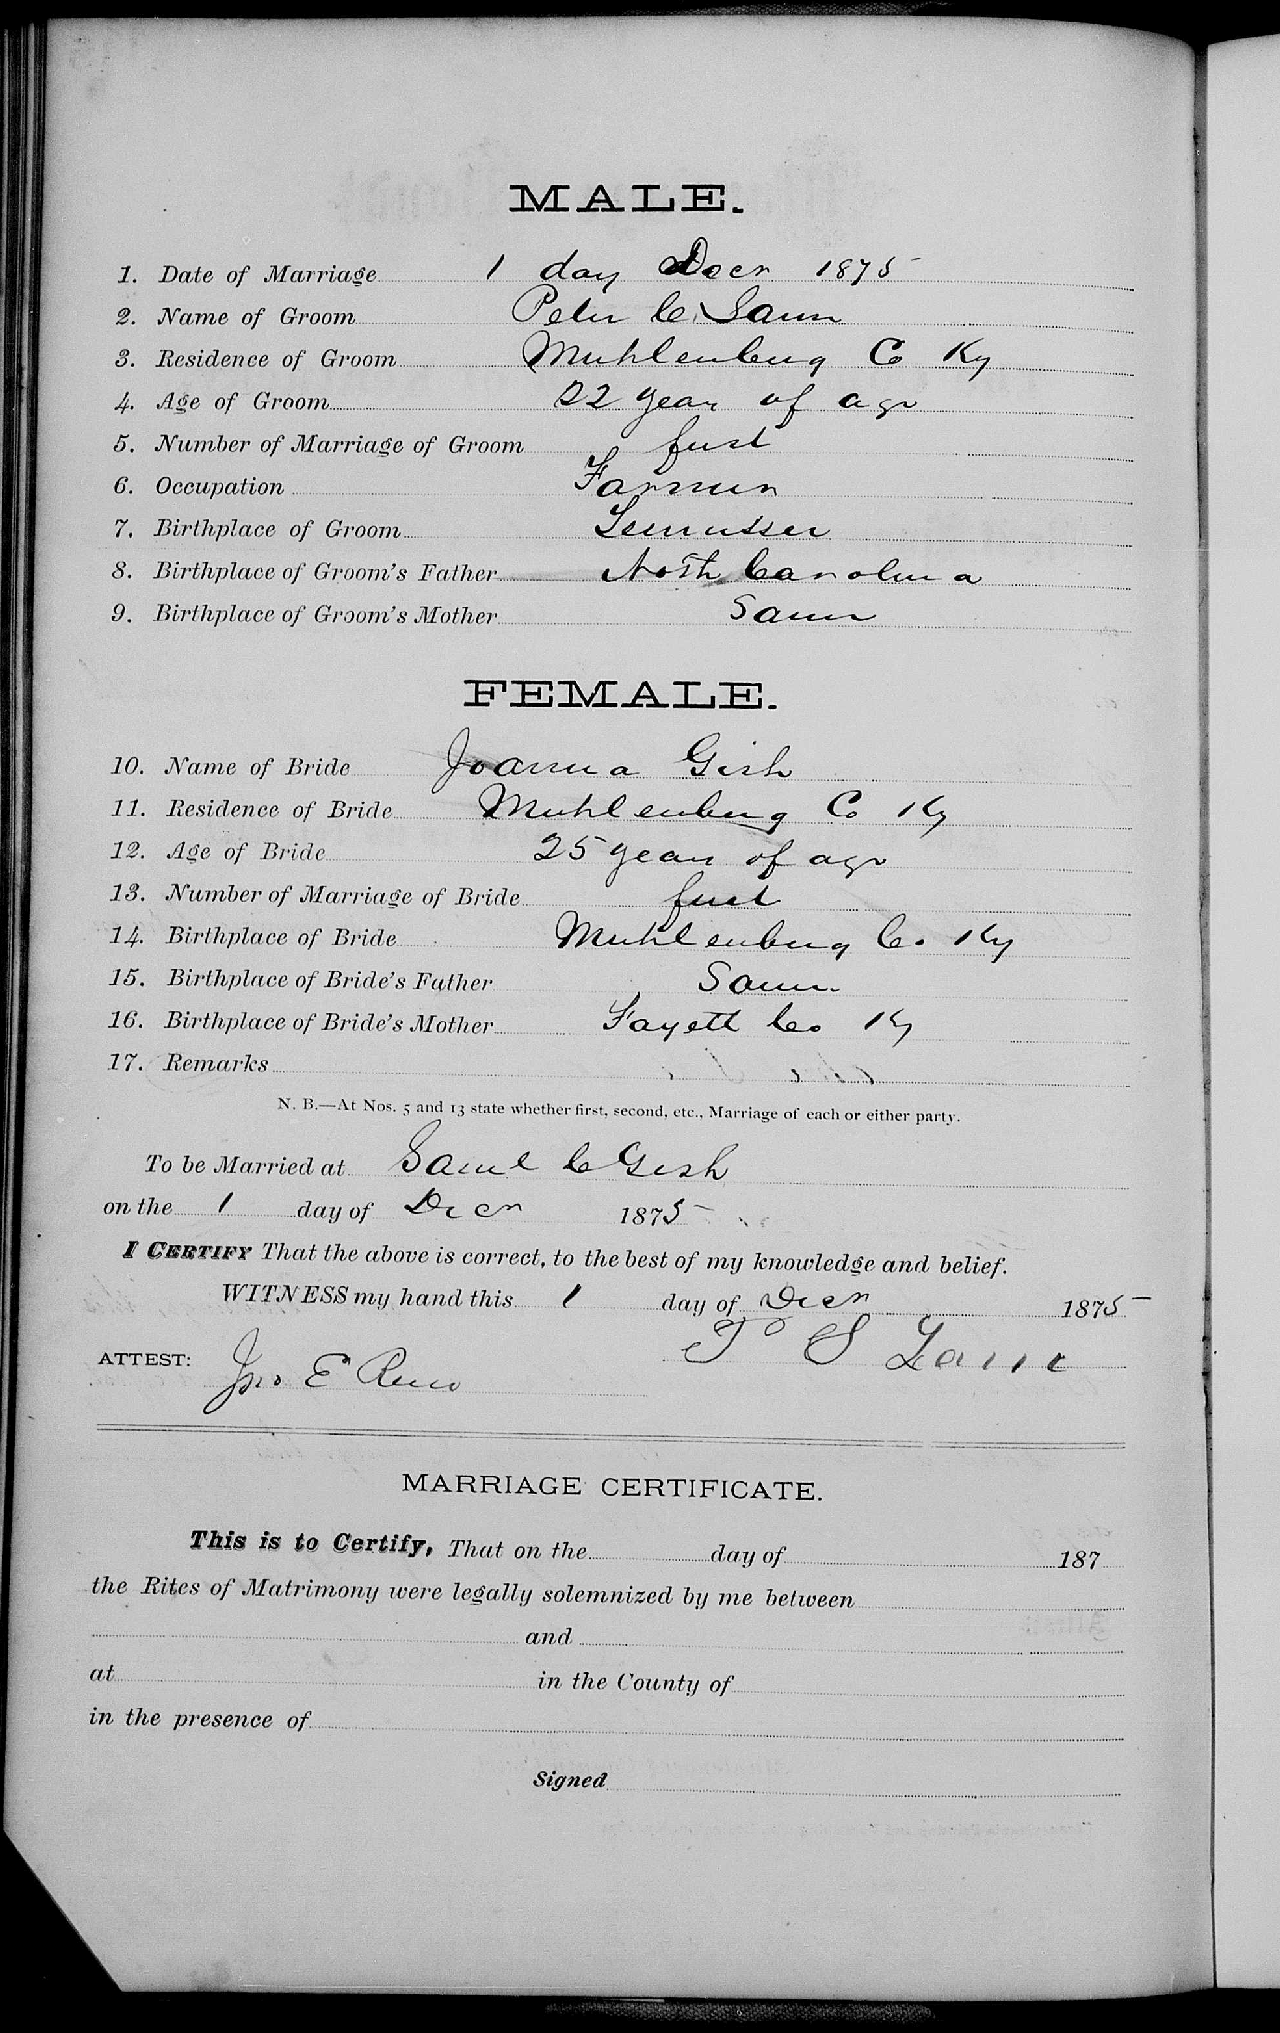 MALE.
1. Date of Marriage 1 day Decr 1875
2. Name of Groom Peter C.
3. Residence of Groom Muhlenberg Co Ky
4. Age of Groom 22 years of age
5. Number of Marriage of Groom first
6. Occupation Farmer
7. Birthplace of Groom Tennessee
8. Birthplace of Groom's Father North Carolina
9. Birthplace of Groom's Mother Same
FEMALE.
10. Name of Bride Joanna Gish
11. Residence of Bride Muhlenberg Co Ky
12. Age of Bride 25 years of age
13. Number of Marriage of Bride first
14. Birthplace of Bride Muhlenberg Co. Ky
15. Birthplace of Bride's Father Same
16. Birthplace of Bride's Mother Fayett Co Ky
17. Remarks
N. B.—At Nos. 5 and 13 state whether first, second, etc., Marriage of each or either party.
To be Married at Saml C Gish
on the 1 day of Decr 1875
I CERTIFY That the above is correct, to the best of my knowledge and belief.
WITNESS my hand this 1 day of Decr 1875
ATTEST: Jno E Reno
MARRIAGE CERTIFICATE.
This is to Certify, That on the day of 187
the Rites of Matrimony were legally solemnized by me between
and
at in the County of
in the presence of
Signed